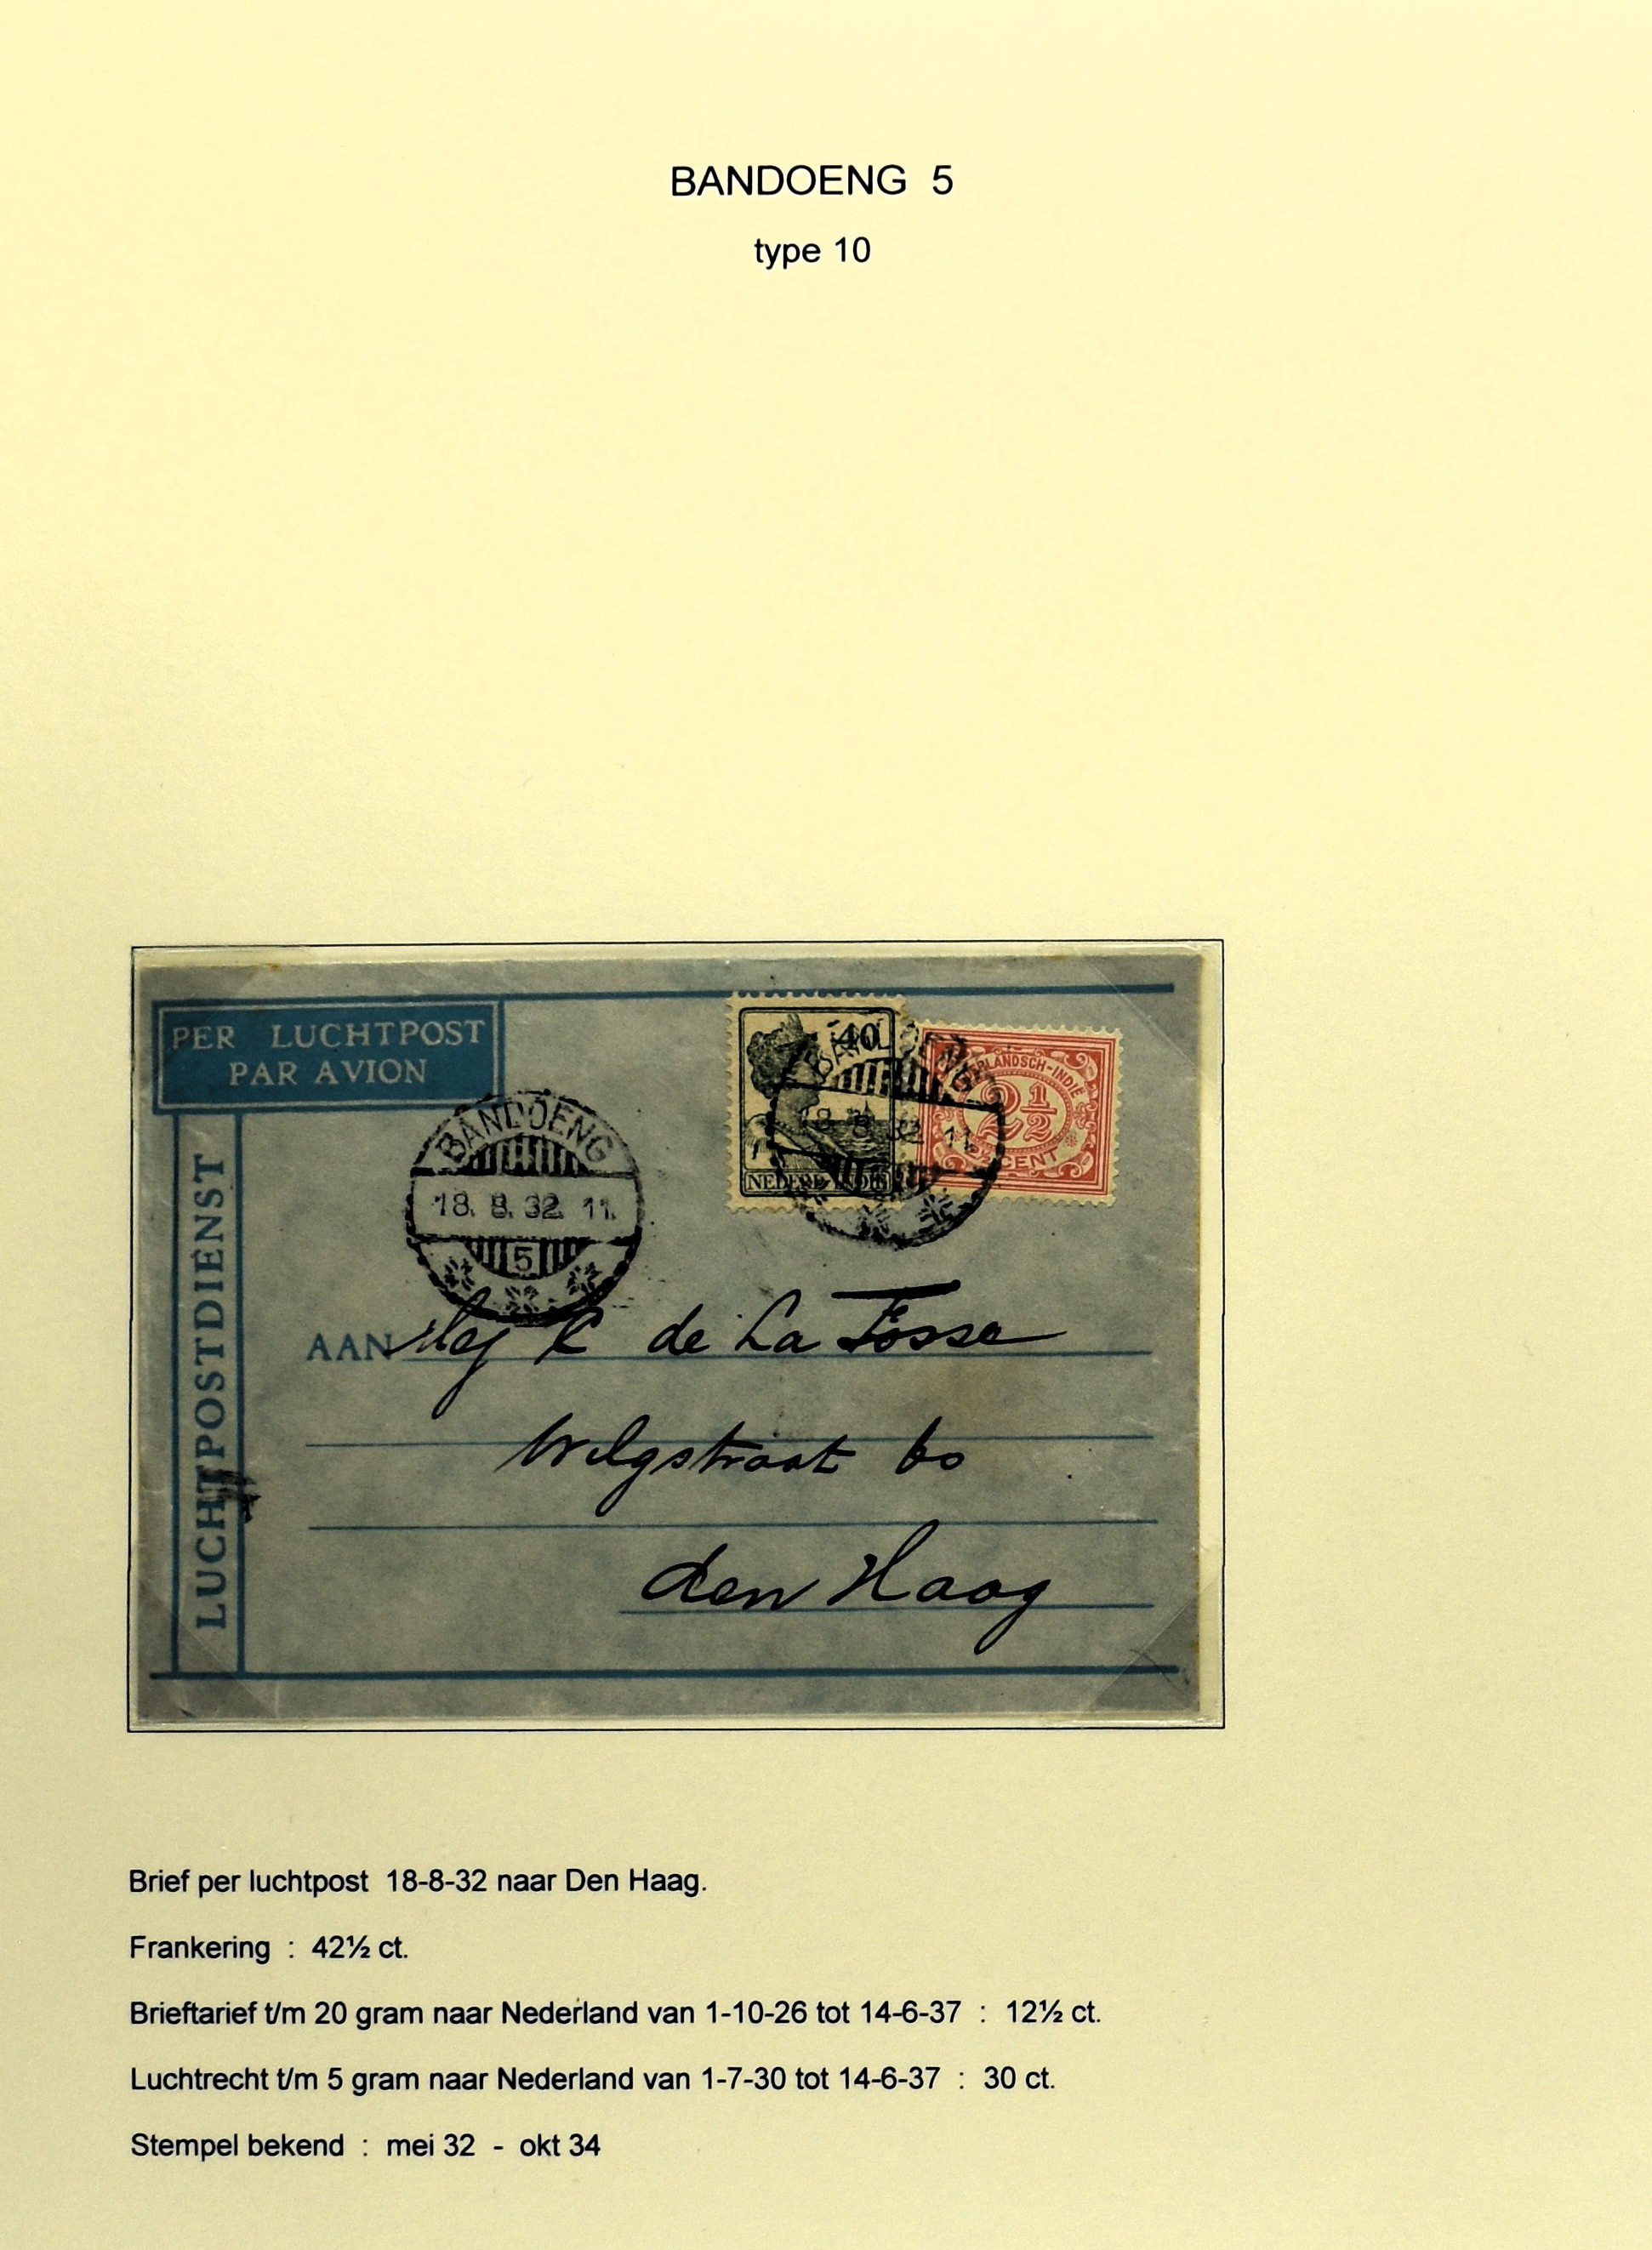 BANDOENG 5
type 10
PER LUCHTPOST
PAR AVION
LUCHTPOSTDIENST
BANDOENG
18. 8. 32. 11.
5
40
NEDERL. INDIË
BANDOENG
18 8 32 11.
NEDERLANDSCH-INDIË
2½
CENT
AAN Mej K de La Fosse
Wilgstraat 60
den Haag
Brief per luchtpost 18-8-32 naar Den Haag.
Frankering : 42½ ct.
Brieftarief t/m 20 gram naar Nederland van 1-10-26 tot 14-6-37 : 12½ ct.
Luchtrecht t/m 5 gram naar Nederland van 1-7-30 tot 14-6-37 : 30 ct.
Stempel bekend : mei 32 - okt 34